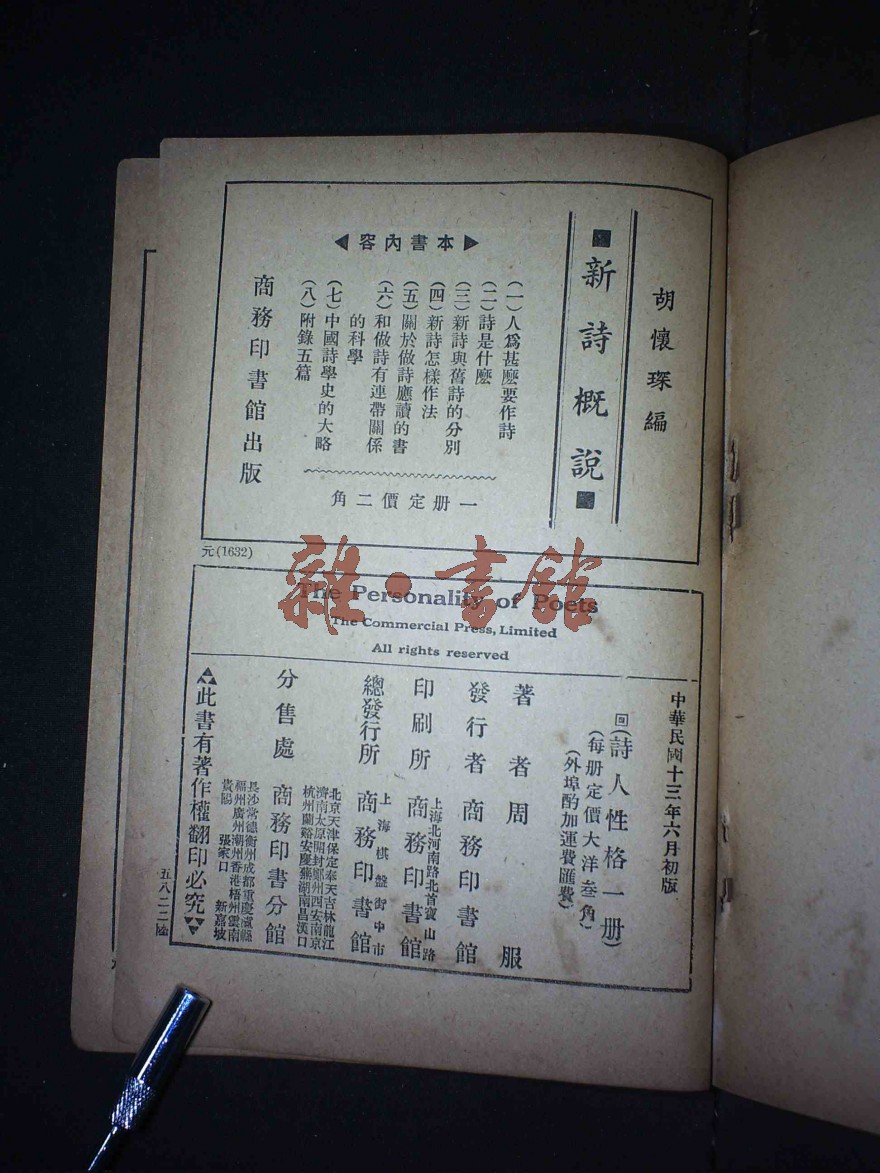 胡懷琛編
新詩概說
本書內容
(一)人爲甚麽要作詩
(二)詩是什麽
(三)新詩與舊詩的分別
(四)新詩怎樣作法
(五)關於做詩應讀的書
(六)和做詩有連帶關係
的科學
(七)中國詩學史的大略
(八)附錄五篇
一册定價二角
商務印書館出版
元(1632)
雜·書館
The Personality of Poets
The Commercial Press, Limited
All rights reserved
中華民國十三年六月初版
回(詩人性格一册)
(每册定價大洋叁角)
(外埠酌加運費匯費)
著者 周服
發行者 商務印書館
印刷所 上海北河南路北首寶山路 商務印書館
總發行所 上海棋盤街中市 商務印書館
分售處 商務印書分館
北京天津保定奉天吉林龍江
濟南太原開封鄭州西安南京
杭州蘭谿安慶蕪湖南昌漢口
長沙常德衡州成都重慶瀘縣
福州廣州潮州香港梧州雲南
貴陽 張家口 新嘉坡
此書有著作權翻印必究
五八二二